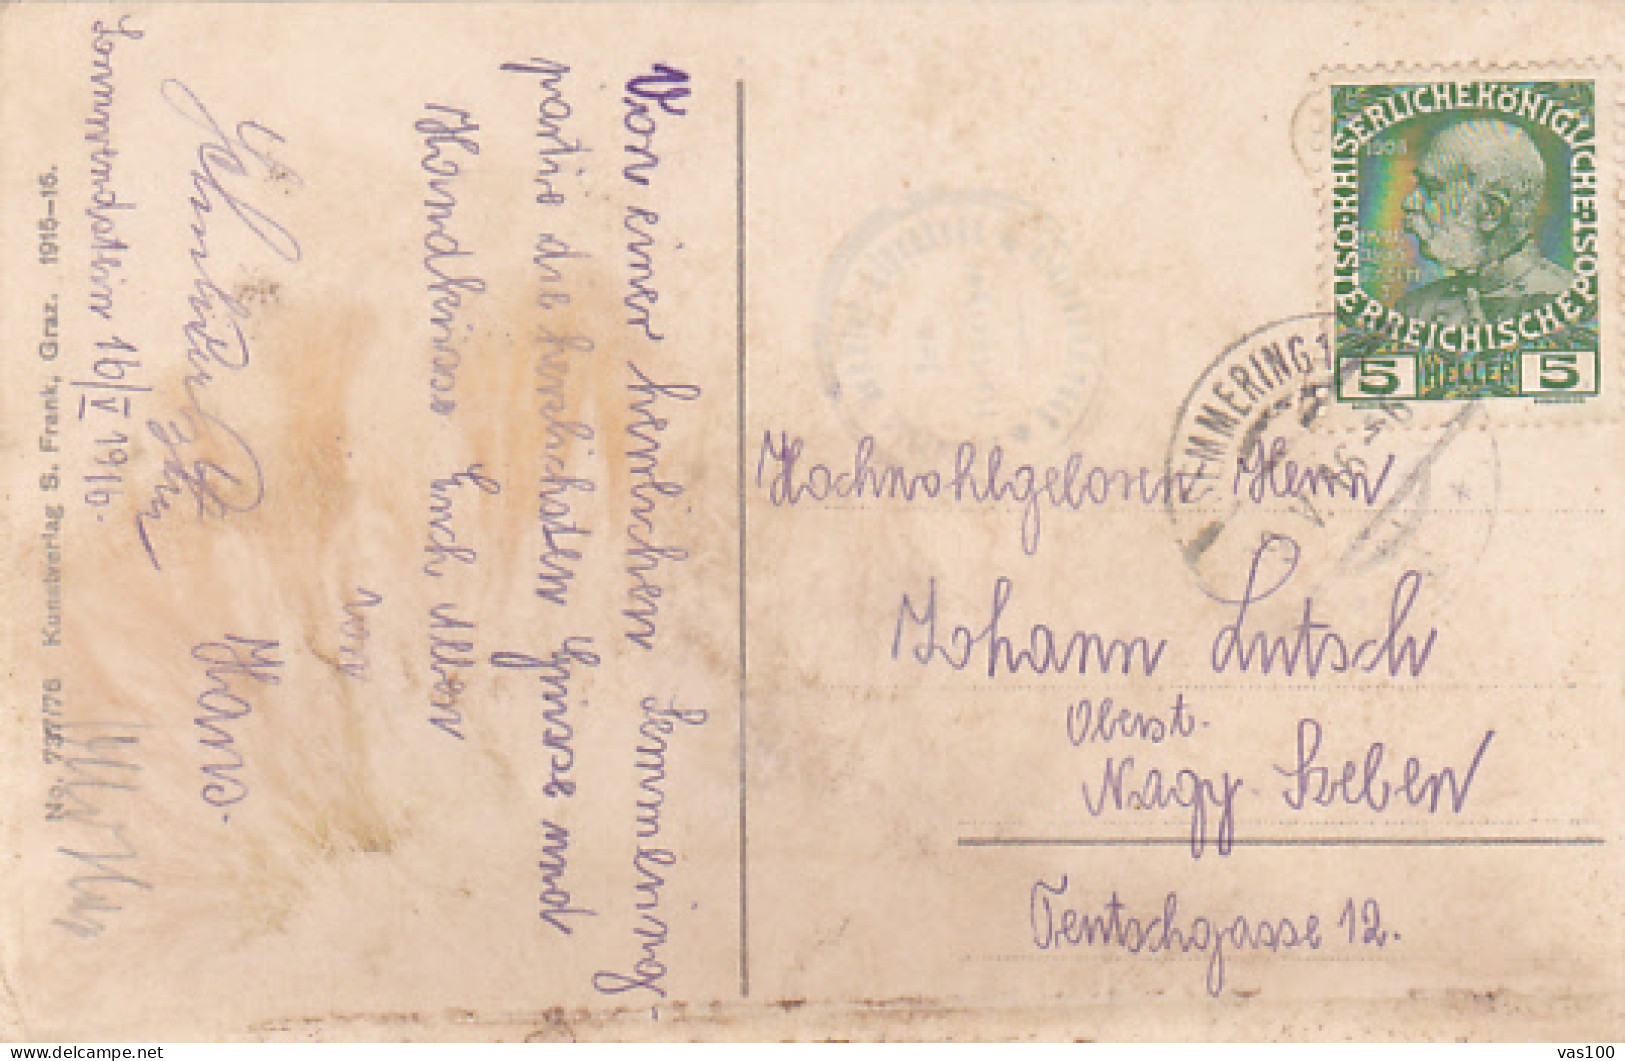 Sonnwendstein 16/V 1916.
Von einer herrlichen Semmering-
partie die herzlichsten Grüsse und
Handküsse Euch Allen
von
Hans.
No. 737/76 Kunstverlag S. Frank, Graz. 1915-16.
KAISERLICHE KÖNIGLICHE
ÖSTERREICHISCHE POST
1908
5 HELLER 5
SEMMERING 1
Hochwohlgeboren Herrn
Johann Lutsch
Oberst.
Nagy-Szeben
Fentschgasse 12.
vas100